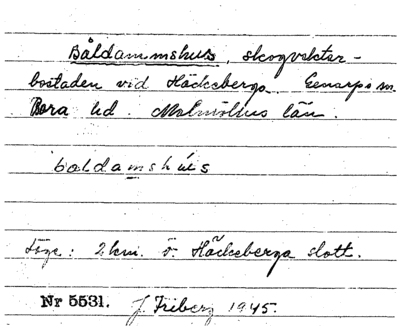 Båldammshus, skogvaktar-
bostaden vid Häckeberga. Genarps sn
Bara hd. Malmöhus län.
boldamshús
Läge: 2 km. Ö. Häckeberga slott.
Nr 5531. J. Friberg 1945.